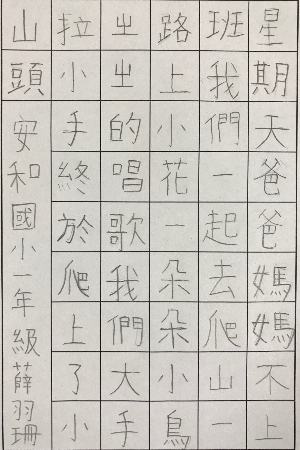 星期天爸爸媽媽不上
班我們一起去爬山一
路上小花一朵朵小鳥
ㄓㄓ的唱歌我們大手
拉小手終於爬上了小
山頭
安和國小一年級薛羽珊